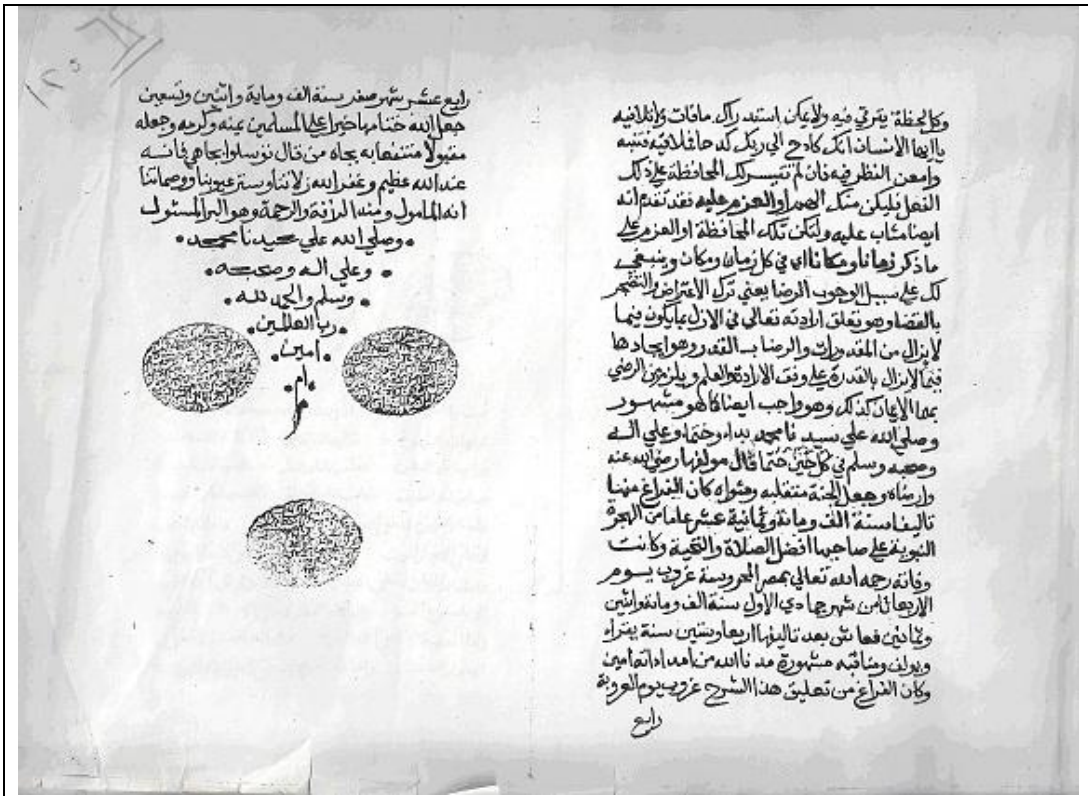 وكل لحظة يترقي فيه ولا يمكن استدراك مافات واتلافيه
ياايها الانسان انك كادح الي ربك كدحا فملاقيه فتنبه
وامعن النظر فيه فان لم تتيسر لك المحافظة علي ذلك
الفعل فليكن منك او العزم عليه فقد تقدم انه
ايضا مثاب عليه ولتكن تلك المحافظة او العزم علي
ما ذكر زمانا ومكانا اي في كل زمان ومكان وينبغي
لك علي سبيل الوجوب الرضا يعني ترك الاعتراض والتضجر
بالقضا وهو تعلق ارادته تعالي في الازل بمايكون فيما
لا يزال من المقدورات والرضا بـ القدر وهو ايجادها
فيما لايزال بالقدرة علي وفق الارادة والعلم ويلزم من الرضي
بهما الايمان كذلك وهو واجب ايضا كما هو مشهور
وصلي الله علي سيدنا محمد بداء وختما وعلي اله
وصحبه وسلم في كل حين حتما قال مولفها رضي الله عنه
وارضاه وجعل الجنة متقلبه ومثواه كان الفراغ منها
تاليفا سنة الف ومائة وثمانية عشر عاما من الهجرة
النبوية علي صاحبها افضل الصلاة والتحية وكانت
وفاته رحمه الله تعالي بمصر المحروسة غروب يوم
الاربعا ثامن شهر جمادي الاول سنة الف ومائة واثنين
وثمانين فعاش بعد تاليفها اربعا وستين سنة يقراء
ويولف ومناقبه مشهورة مدنا الله من امداداته امين
وكان الفراغ من تعليق هذا الشرح غروب يوم العروبة
رابع
رابع عشر شهر صفر سنة الف وماية واثنين وتسعين
جعل الله ختامها خيرا علي المسلمين بمنه وكرمه وجعله
مقبولا منتفعا به بجاه من قال توسلوا بجاهي فانه
عند الله عظيم وغفر الله زلاتنا وستر عيوبنا ووصماتنا
انه المامول ومنه الرافة والرحمة وهو البر المسئول
وصلي الله علي سيدنا محمد
وعلي اله وصحبه
وسلم والحمد لله
رب العالمين
امين
ام
م